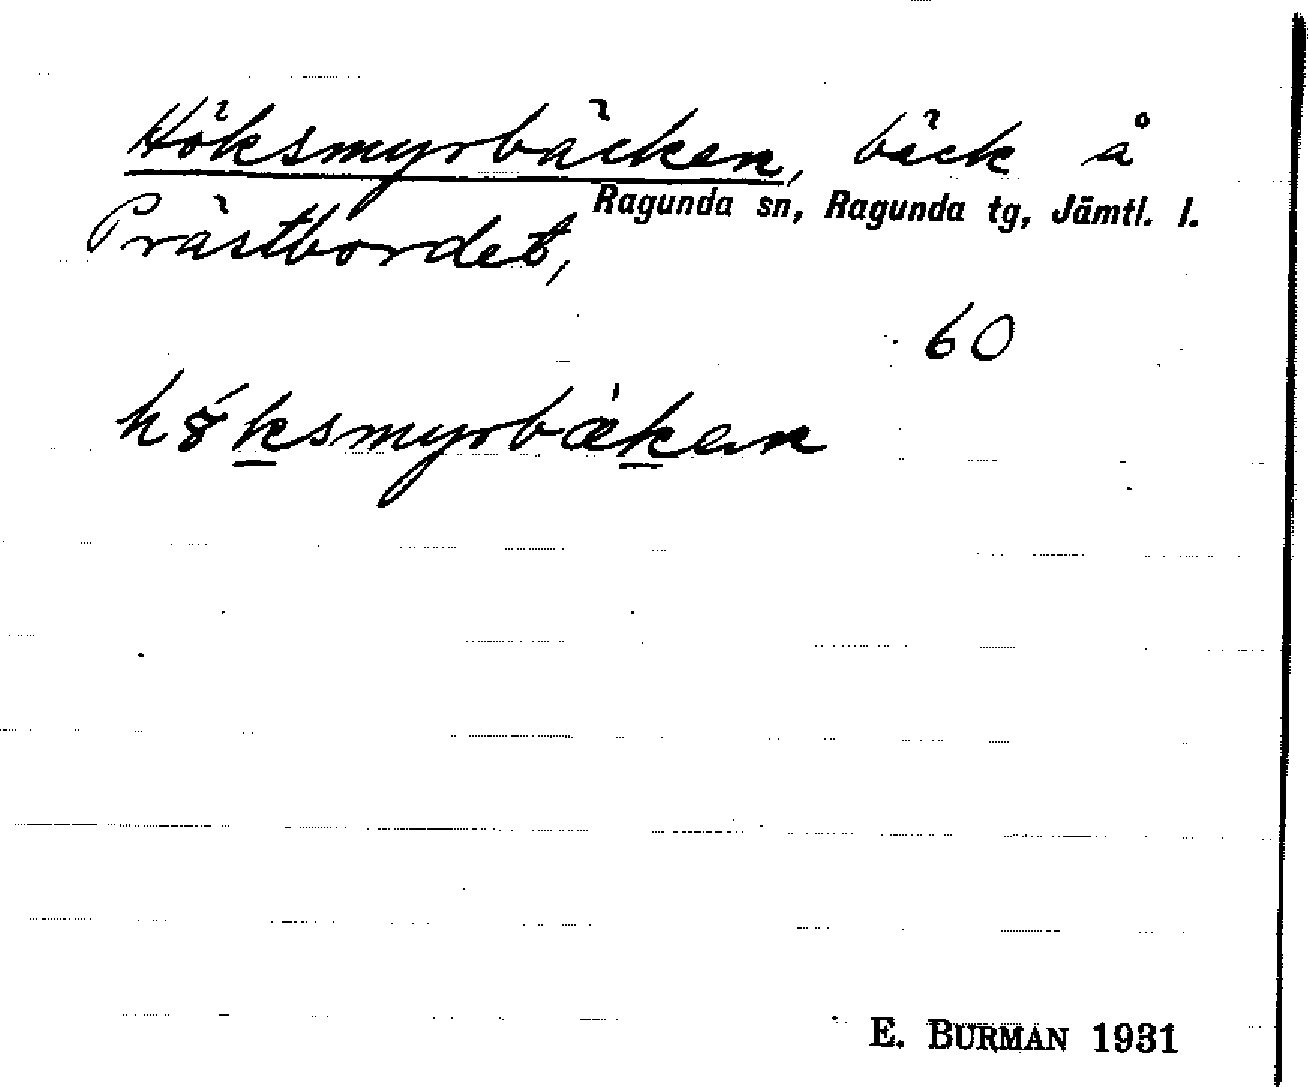 Höksmyrbäcken, bäck å
Ragunda sn, Ragunda tg, Jämtl. l.
Prästbordet,
60
höksmyrbæken
E. BURMAN 1931